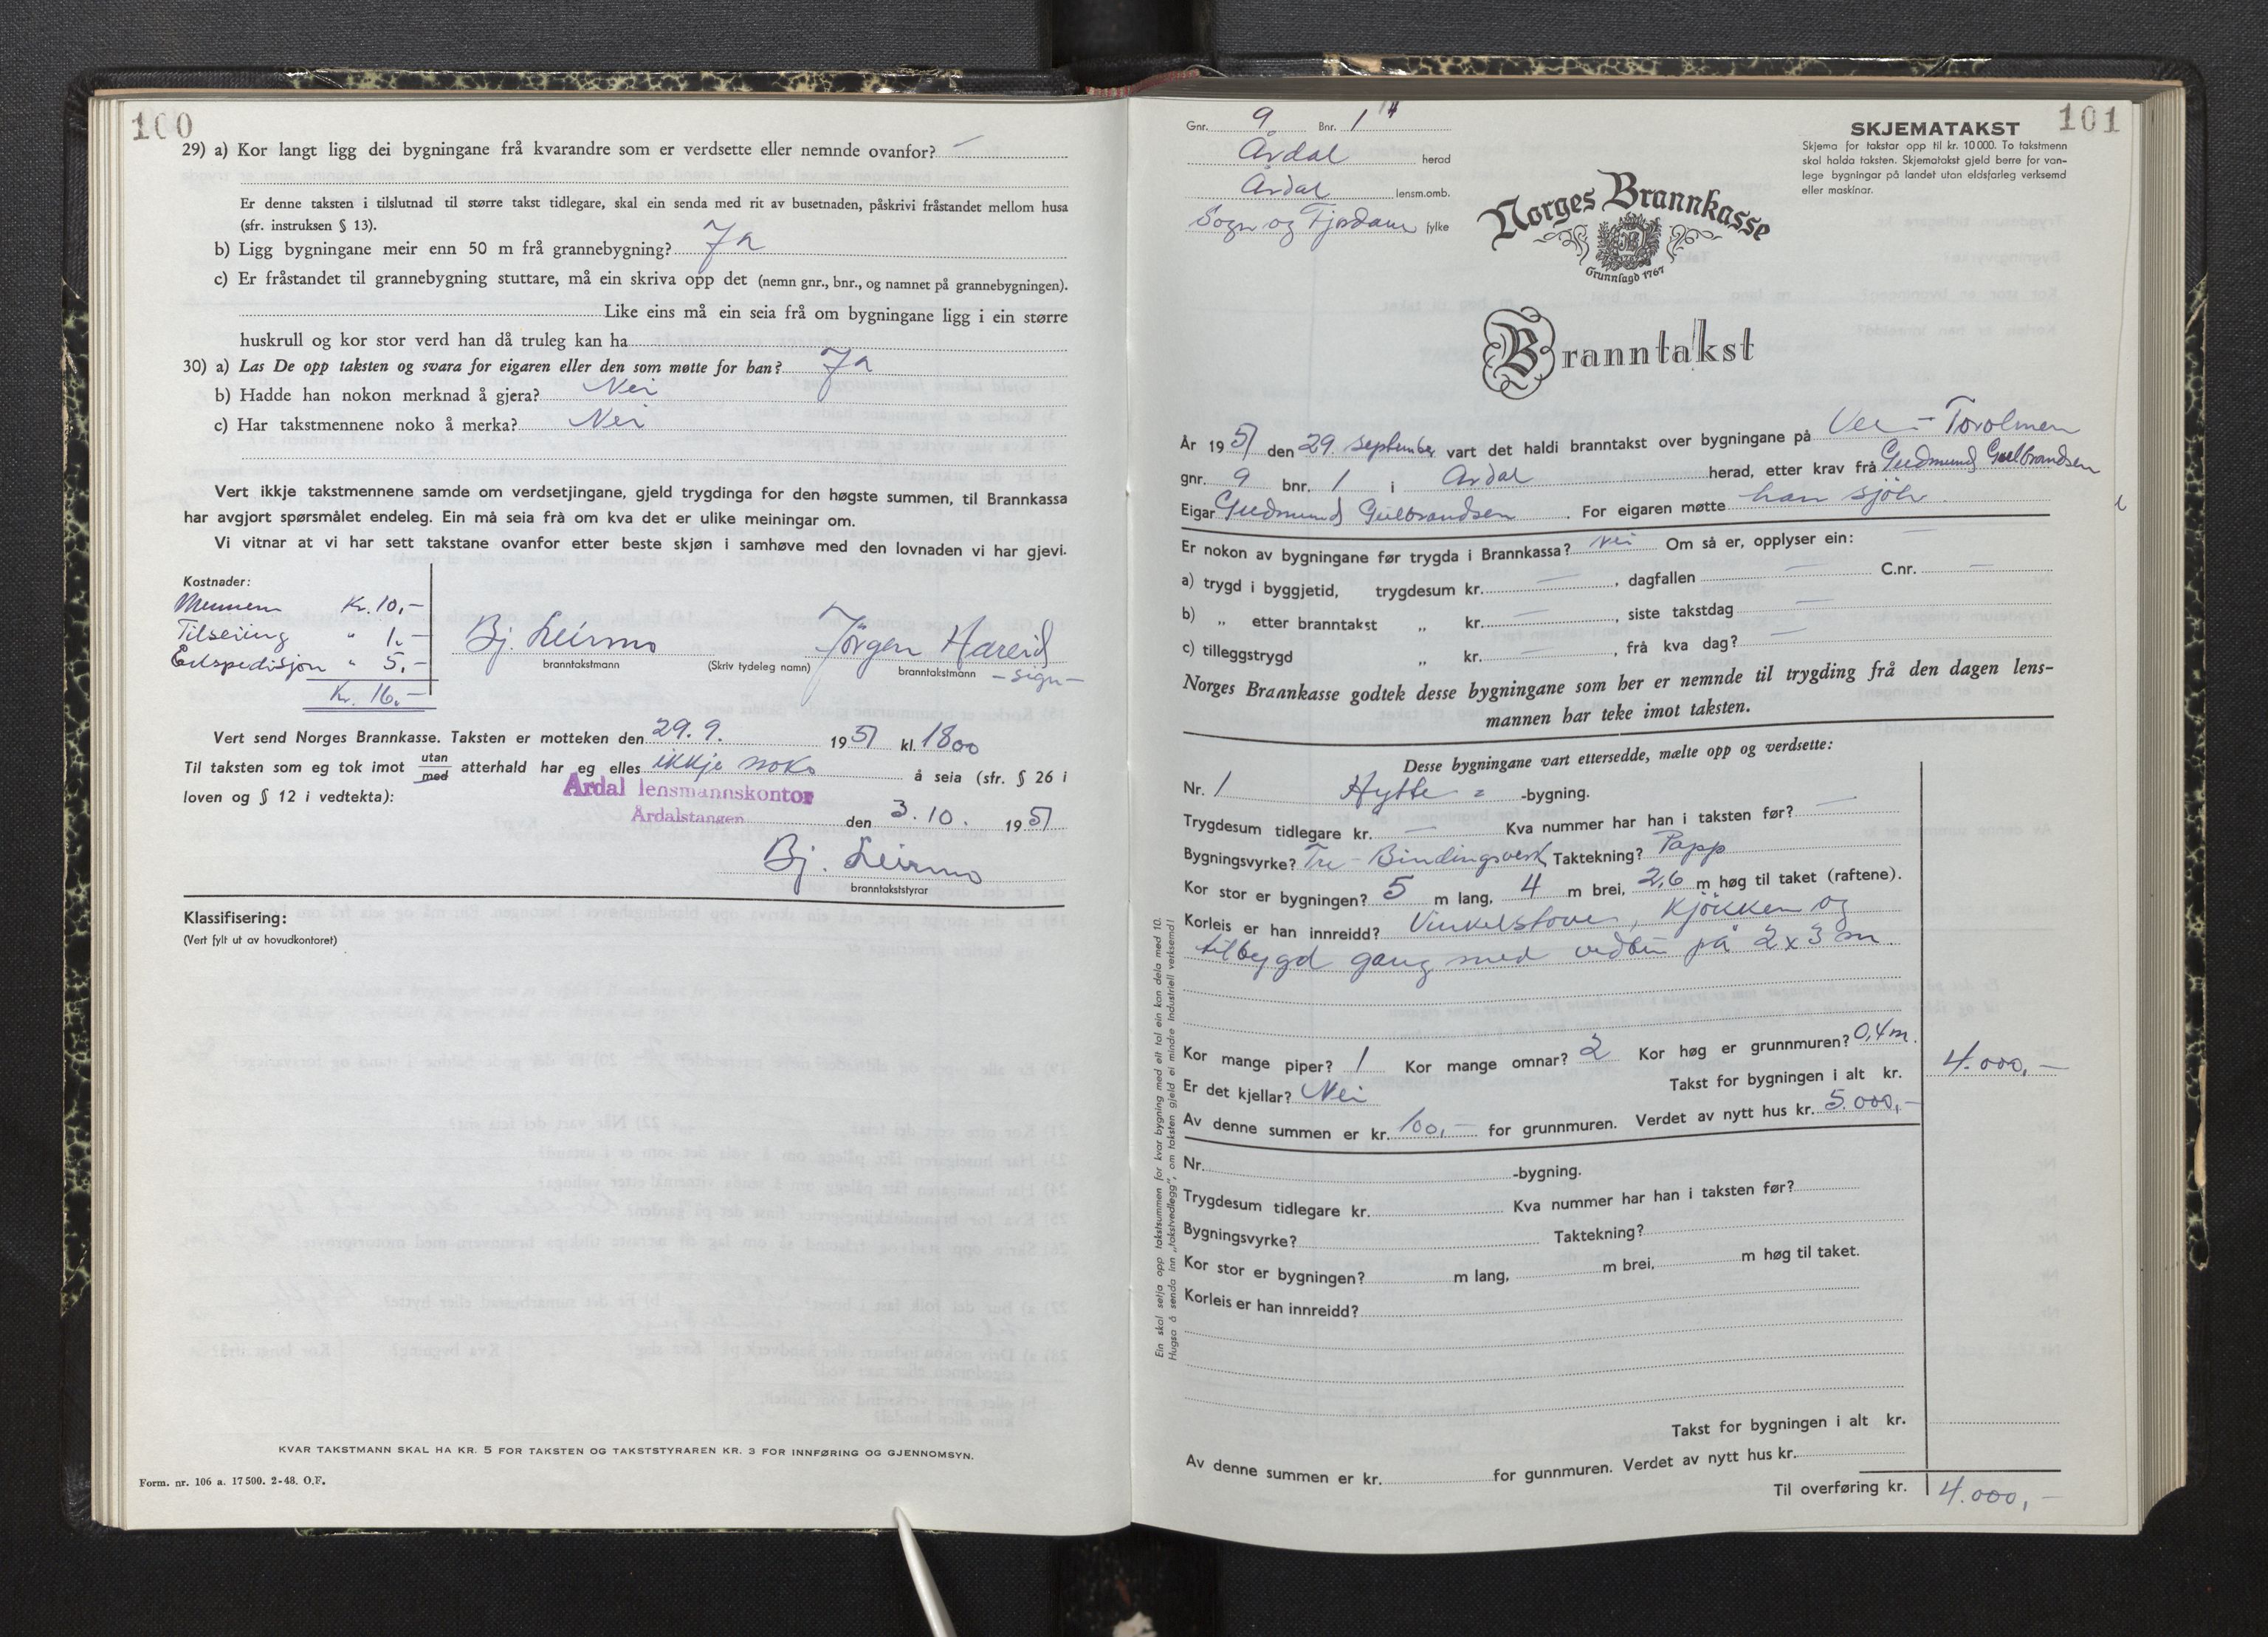 100
29) a) Kor langt ligg dei bygningane frå kvarandre som er verdsette eller nemnde ovanfor? —
Er denne taksten i tilslutnad til større takst tidlegare, skal ein senda med rit av busetnaden, påskrivi fråstandet mellom husa
(sfr. instruksen § 13).
b) Ligg bygningane meir enn 50 m frå grannebygning? Ja
c) Er fråstandet til grannebygning stuttare, må ein skriva opp det (nemn gnr., bnr., og namnet på grannebygningen).
Like eins må ein seia frå om bygningane ligg i ein større
huskrull og kor stor verd han då truleg kan ha
30) a) Las De opp taksten og svara for eigaren eller den som møtte for han? Ja
b) Hadde han nokon merknad å gjera? Nei
c) Har takstmennene noko å merka? Nei
Vert ikkje takstmennene samde om verdsetjingane, gjeld trygdinga for den høgste summen, til Brannkassa
har avgjort spørsmålet endeleg. Ein må seia frå om kva det er ulike meiningar om.
Vi vitnar at vi har sett takstane ovanfor etter beste skjøn i samhøve med den lovnaden vi har gjevi.
Kostnader:
Mennene Kr. 10,—
Tilseiing " 1.—
Ekspedisjon " 5,—
Kr. 16.—
Bj. Leirmo Jörgen Hareid
branntakstmann (Skriv tydeleg namn) branntakstmann — sign —
Vert send Norges Brannkasse. Taksten er motteken den 29. 9. 1951 kl. 1800
Til taksten som eg tok imot utan/med atterhald har eg elles ikkje noko å seia (sfr. § 26 i
loven og § 12 i vedtekta):
Årdal lensmannskontor
Årdalstangen den 3. 10. 1951
Bj. Leirmo
branntakststyrar
Klassifisering:
(Vert fylt ut av hovudkontoret)
KVAR TAKSTMANN SKAL HA KR. 5 FOR TAKSTEN OG TAKSTSTYRAREN KR. 3 FOR INNFØRING OG GJENNOMSYN.
Form. nr. 106 a. 17500. 2-48. O.F.
101
Gnr. 9 Bnr. 1
Årdal herad
Årdal lensm.omb.
Sogn og Fjordane fylke
SKJEMATAKST
Skjema for takstar opp til kr. 10 000. To takstmenn
skol halda taksten. Skjematakst gjeld berre for van-
lege bygningar på landet utan eldsfarleg verksemd
eller maskinar.
Norges Brannkasse
Grunnlagd 1767
Branntakst
År 1951 den 29. september vart det haldi branntakst over bygningane på Vee - Torolmen
gnr. 9 bnr. 1 i Årdal herad, etter krav frå Gudmund Gulbrandsen
Eigar Gudmund Gulbrandsen . For eigaren møtte han sjölv.
Er nokon av bygningane før trygda i Brannkassa? Nei Om så er, opplyser ein: —
a) trygd i byggjetid, trygdesum kr. — , dagfallen — C.nr. —
b) „ etter branntakst „ kr. — , siste takstdag —
c) tilleggstrygd „ kr. — , frå kva dag? —
Norges Brannkasse godtek desse bygningane som her er nemnde til trygding frå den dagen lens-
mannen har teke imot taksten.
Desse bygningane vart ettersedde, mælte opp og verdsette:
Nr. 1 Hytte = -bygning.
Trygdesum tidlegare kr. — Kva nummer har han i taksten før? —
Bygningsvyrke? Tre - Bindingsverk Taktekning? Papp
Kor stor er bygningen? 5 m lang, 4 m brei, 2,6 m høg til taket (raftene).
Korleis er han innreidd? Vinkelstove, Kjökken og
tilbygd gang med vedbu på 2 x 3 m
Kor mange piper? 1 Kor mange omnar? 2 Kor høg er grunnmuren? 0,4 m.
Er det kjellar? Nei Takst for bygningen i alt kr. 4.000,—
Av denne summen er kr. 100,— for grunnmuren. Verdet av nytt hus kr. 5.000,—
Nr. -bygning.
Trygdesum tidlegare kr. Kva nummer har han i taksten før?
Bygningsvyrke? Taktekning?
Kor stor er bygningen? m lang, m brei, m høg til taket.
Korleis er han innreidd?
Takst for bygningen i alt kr.
Av denne summen er kr. for gunnmuren. Verdet av nytt hus kr.
Til overføring kr. 4.000,—
Ein skal setja opp takstsummen for kvar bygning med eit tal ein kan dela med 10.
Hugsa å senda inn „takstvedlegg", om taksten gjeld ei mindre industriell verksemd!